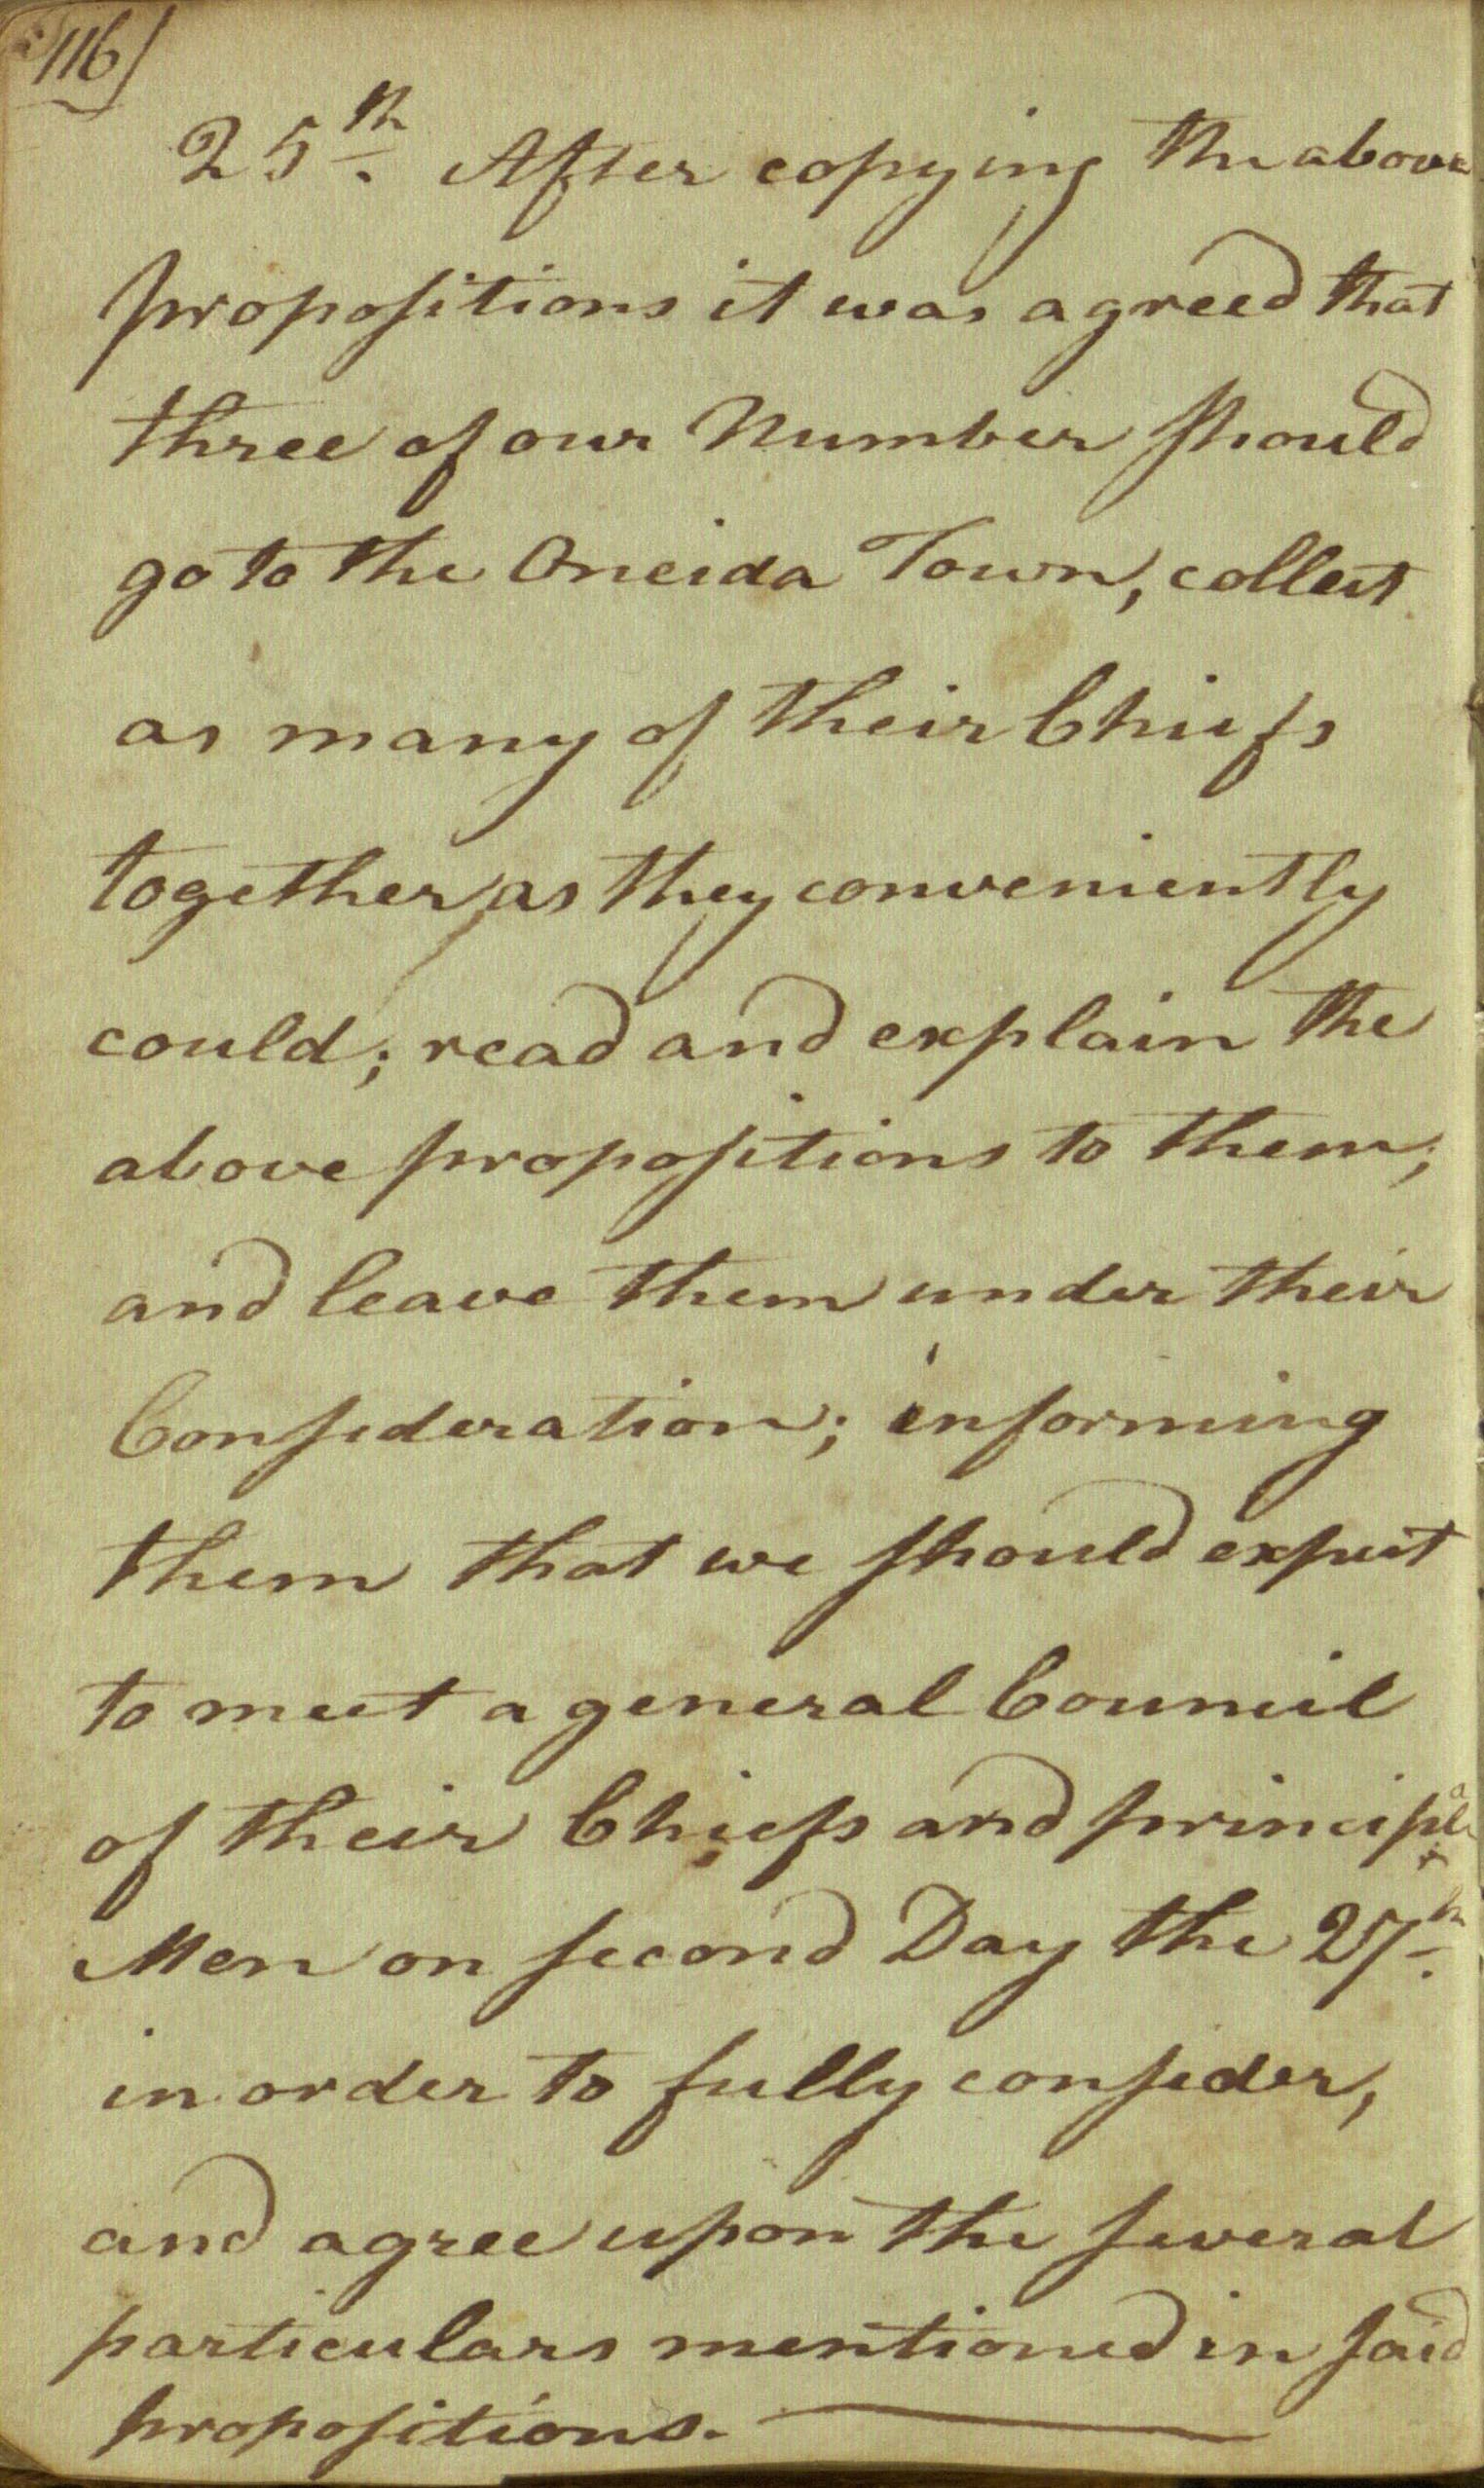 116)
25th. After copying the above
propositions it was agreed that
three of our Number should
go to the Oneida Town, collect
as many of their Chiefs
together as they conveniently
could; read and explain the
above propositions to them;
and leave them under their
Consideration; informing
them that we should expect
to meet a general Council
of their Chiefs and principal
Men on second Day the 27th.
in order to fully consider,
and agree upon the several
particulars mentioned in said
propositions.